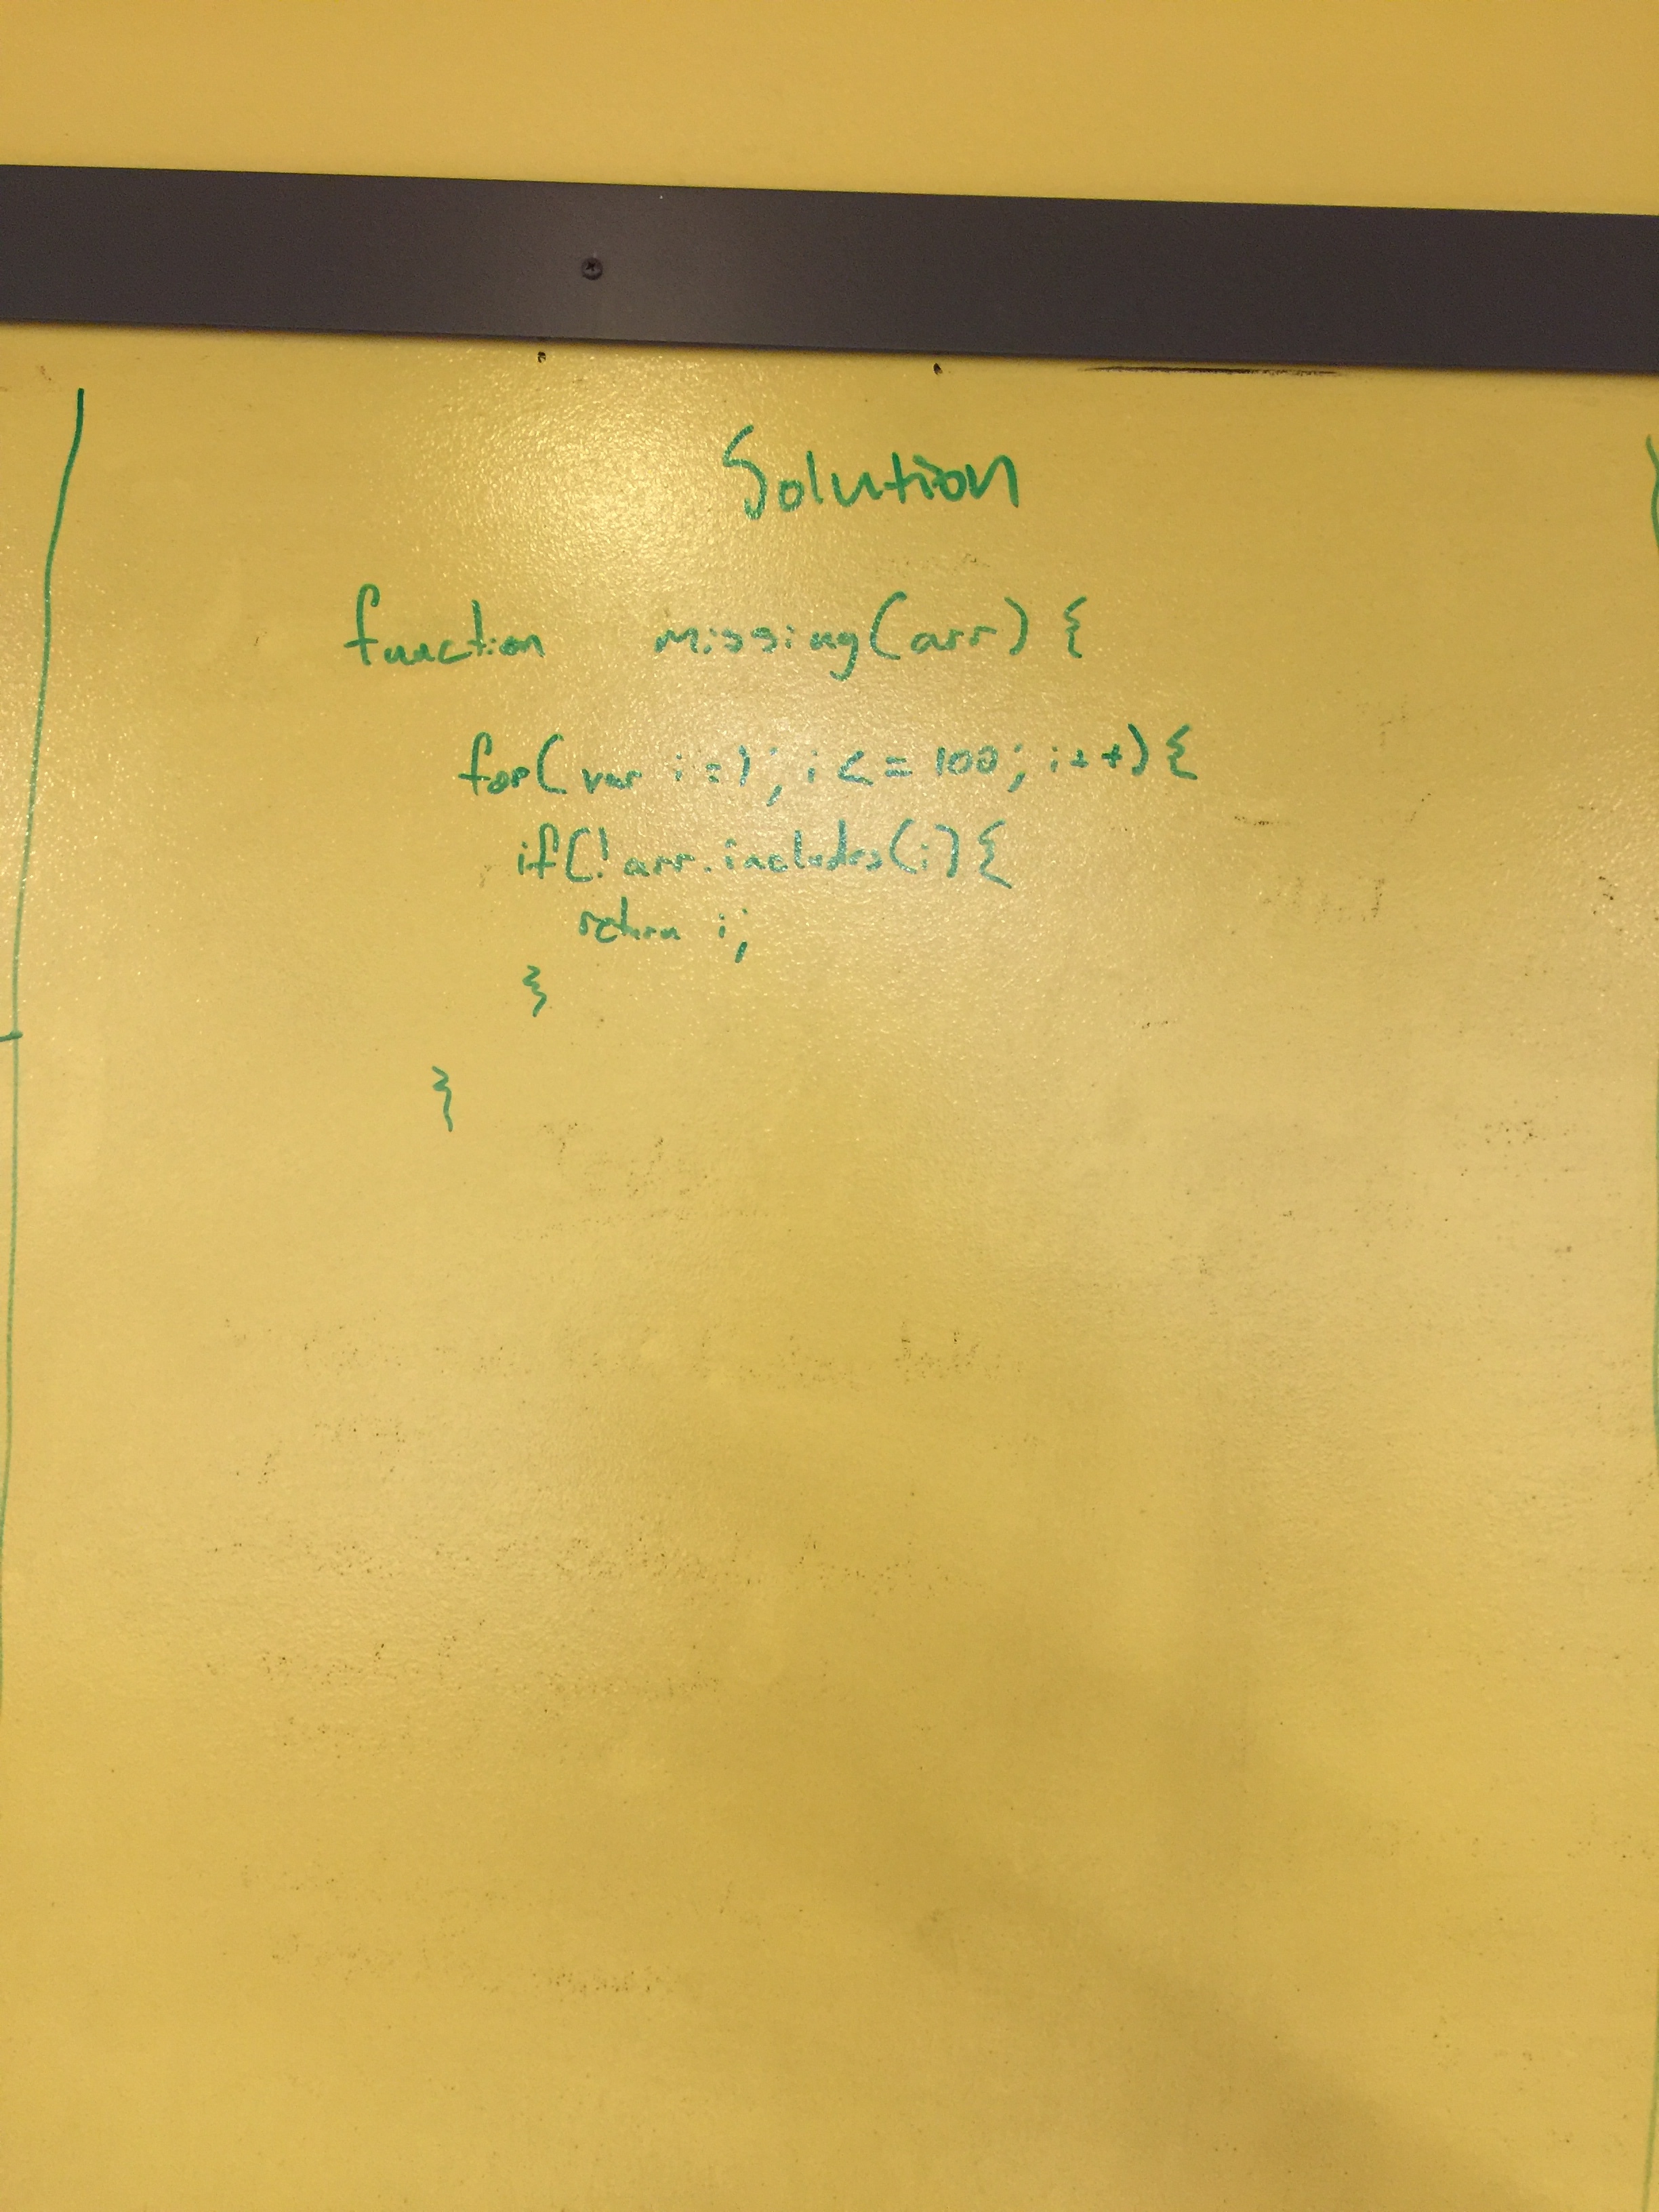 Solution
function missing(arr) {
for(var i=1; i<=100; i++) {
if(!arr.includes(i) {
return i;
}
}